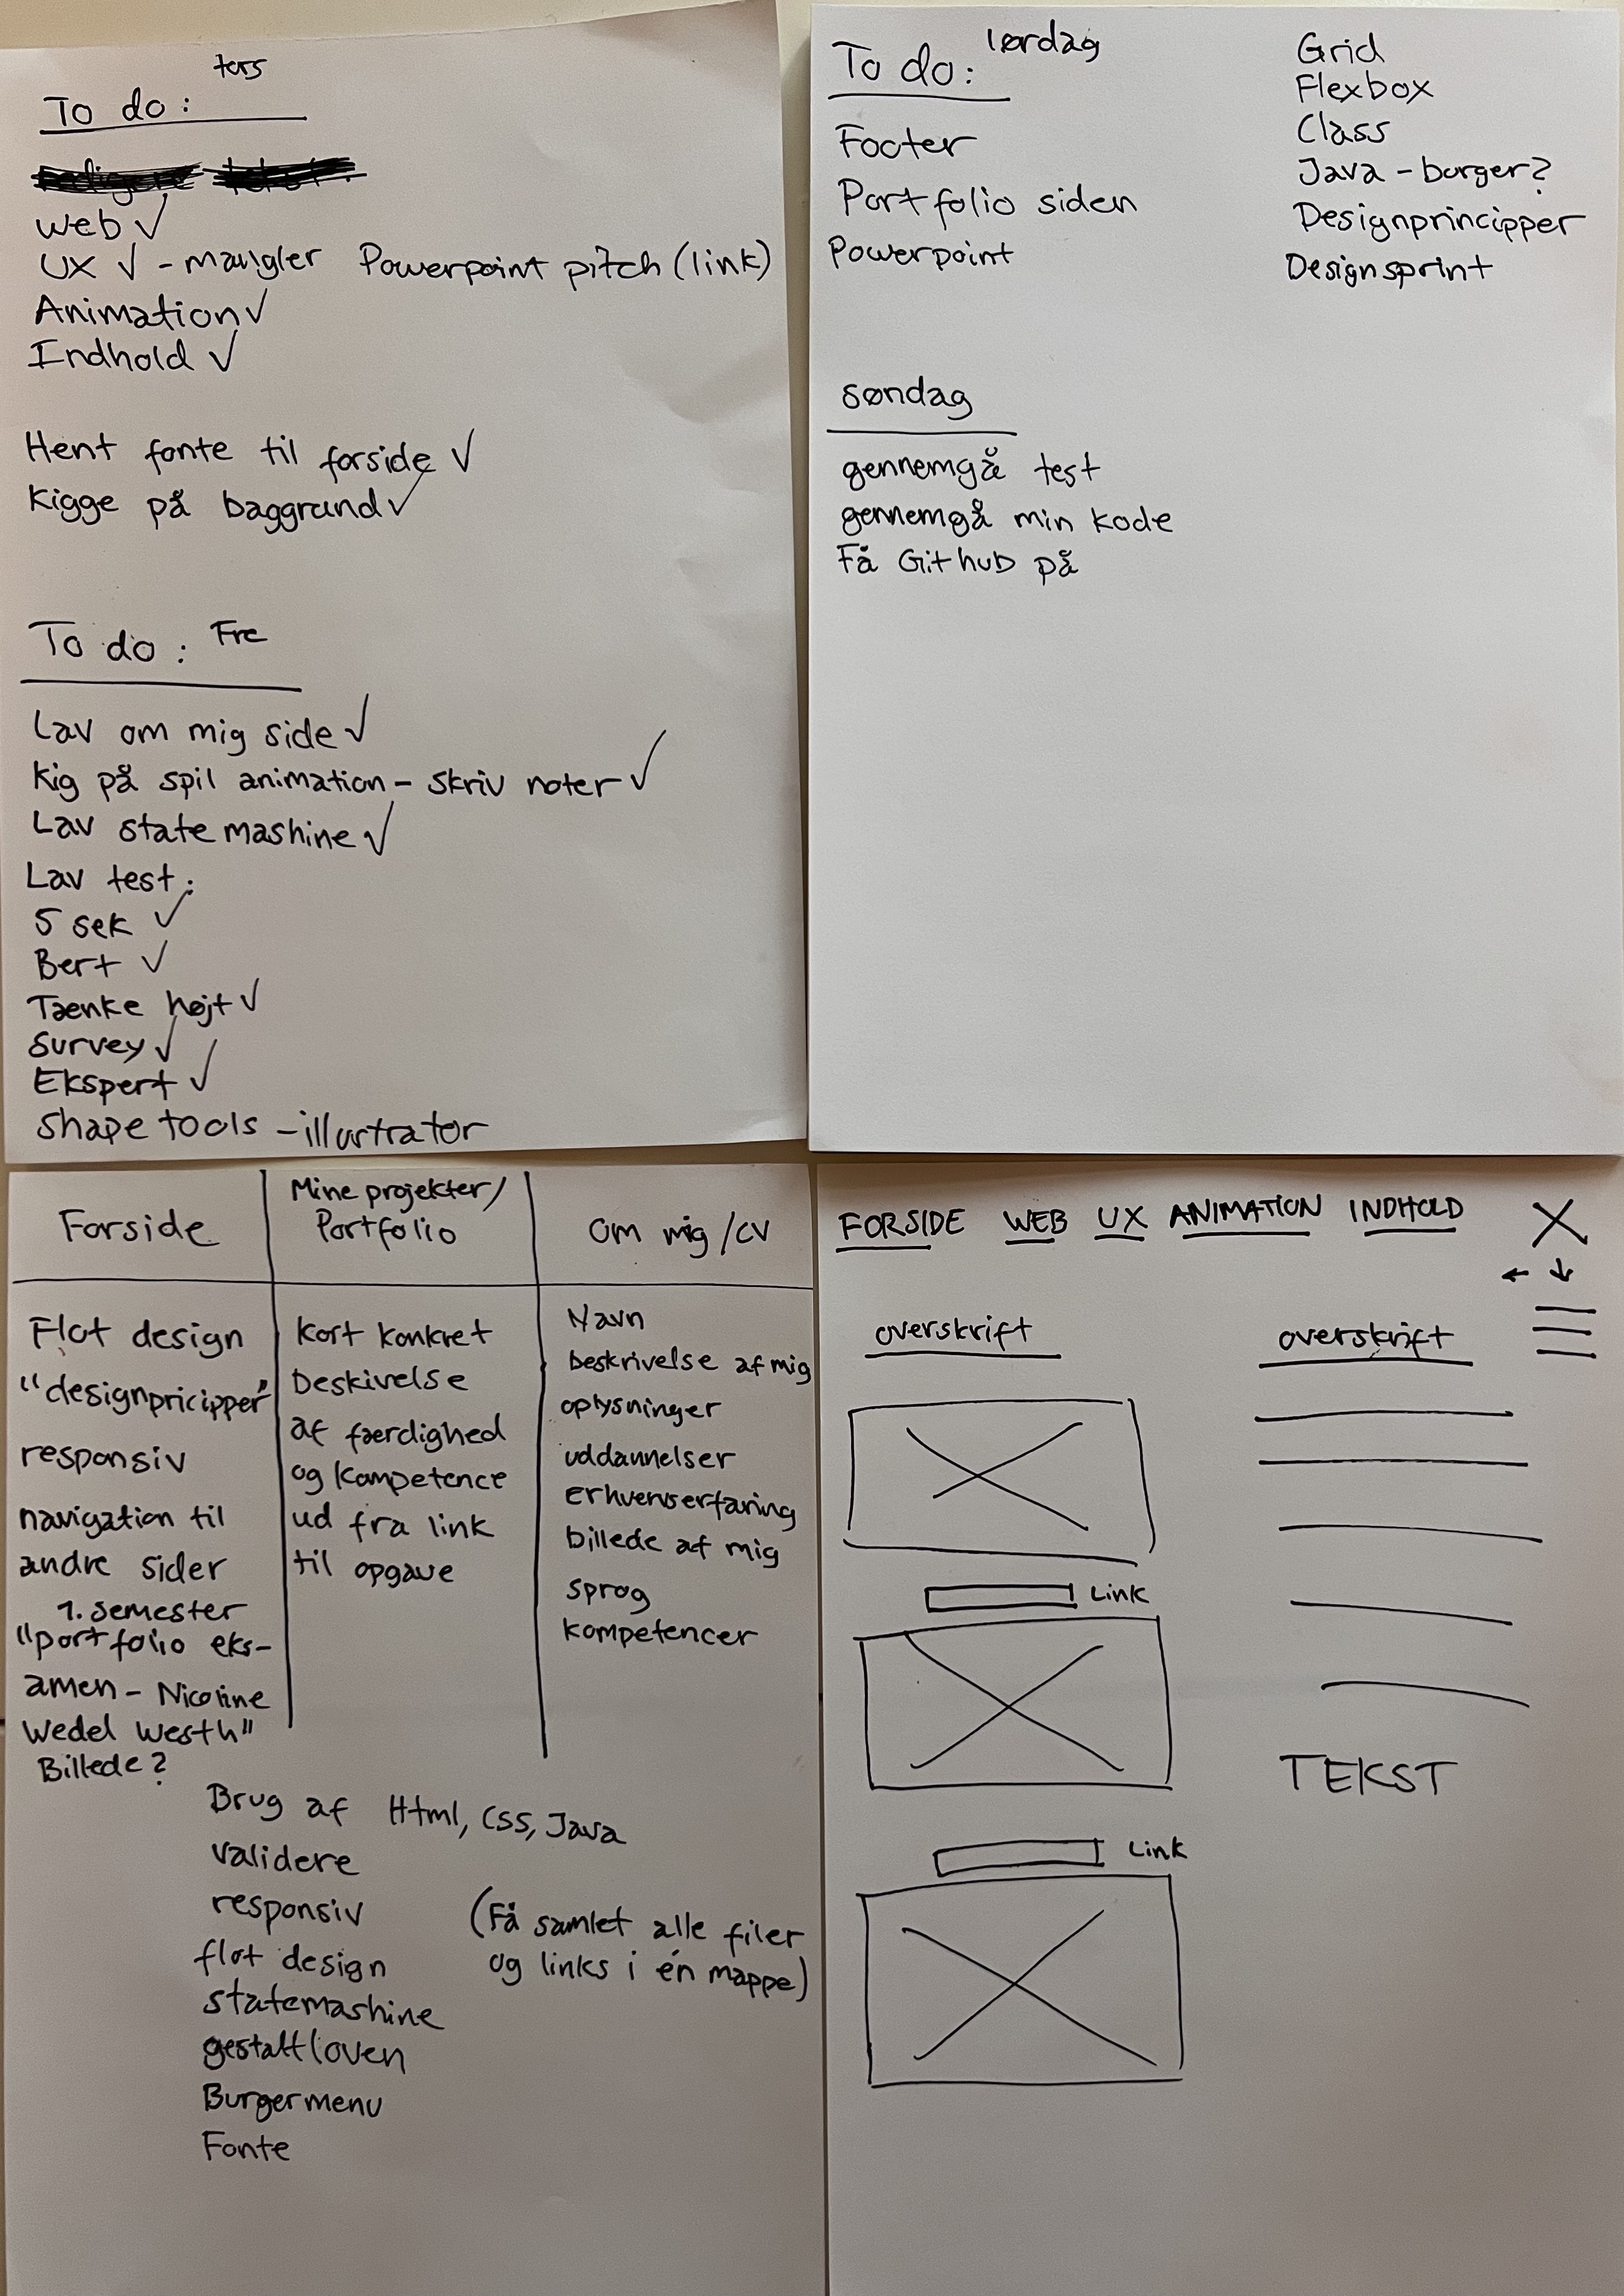 tors
To do:
web ✓
UX ✓ - mangler Powerpoint pitch (link)
Animation ✓
Indhold ✓
Hent fonte til forside ✓
Kigge på baggrund ✓
To do: Fre
Lav om mig side ✓
Kig på spil animation - skriv noter ✓
Lav statemashine ✓
Lav test:
5 sek ✓
Bert ✓
Tænke højt ✓
Survey ✓
Ekspert ✓
shape tools - illustrator
To do: lørdag
Footer
Portfolio siden
Powerpoint
Grid
Flexbox
Class
Java - burger?
Designprincipper
Designsprint
søndag
gennemgå test
gennemgå min kode
Få Github på
Forside
Flot design
"designpricipper"
responsiv
navigation til
andre sider
1. semester
"portfolio eks-
amen - Nicoline
Wedel Westh"
Billede?
Mine projekter/
Portfolio
Kort konkret
beskivelse
af færdighed
og kompetence
ud fra link
til opgave
Om mig /CV
Navn
beskrivelse af mig
oplysninger
uddannelser
erhvervserfaring
billede af mig
sprog
kompetencer
Brug af Html, CSS, Java
validere
responsiv
flot design
statemashine
gestaltloven
Burgermenu
Fonte
(Få samlet alle filer
og links i én mappe)
FORSIDE WEB UX ANIMATION INDHOLD X
← ↓
overskrift
overskrift
Link
Link
TEKST